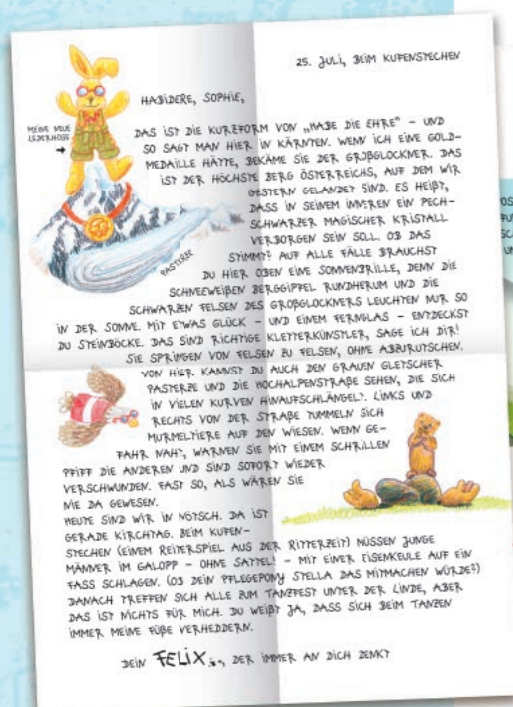 25. JULI, BEIM KUFENSTECHEN
HABIDERE, SOPHIE,
MEINE NEUE
LEDERHOSE
DAS IST DIE KURZFORM VON „HABE DIE EHRE" – UND
SO SAGT MAN HIER IN KÄRNTEN. WENN ICH EINE GOLD-
MEDAILLE HÄTTE, BEKÄME SIE DER GROßGLOCKNER. DAS
IST DER HÖCHSTE BERG ÖSTERREICHS, AUF DEM WIR
GESTERN GELANDET SIND. ES HEIßT,
DASS IN SEINEM INNEREN EIN PECH-
SCHWARZER MAGISCHER KRISTALL
VERBORGEN SEIN SOLL. OB DAS
PASTERZE
STIMMT? AUF ALLE FÄLLE BRAUCHST
DU HIER OBEN EINE SONNENBRILLE, DENN DIE
SCHNEEWEIßEN BERGGIPFEL RUNDHERUM UND DIE
SCHWARZEN FELSEN DES GROßGLOCKNERS LEUCHTEN NUR SO
IN DER SONNE. MIT ETWAS GLÜCK – UND EINEM FERNGLAS – ENTDECKST
DU STEINBÖCKE. DAS SIND RICHTIGE KLETTERKÜNSTLER, SAGE ICH DIR!
SIE SPRINGEN VON FELSEN ZU FELSEN, OHNE ABZURUTSCHEN.
VON HIER KANNST DU AUCH DEN GRAUEN GLETSCHER
PASTERZE UND DIE HOCHALPENSTRAßE SEHEN, DIE SICH
IN VIELEN KURVEN HINAUFSCHLÄNGELT. LINKS UND
RECHTS VON DER STRAßE TUMMELN SICH
MURMELTIERE AUF DEN WIESEN. WENN GE-
FAHR NAHT, WARNEN SIE MIT EINEM SCHRILLEN
PFIFF DIE ANDEREN UND SIND SOFORT WIEDER
VERSCHWUNDEN. FAST SO, ALS WÄREN SIE
NIE DA GEWESEN.
HEUTE SIND WIR IN NÖTSCH. DA IST
GERADE KIRCHTAG. BEIM KUFEN-
STECHEN (EINEM REITERSPIEL AUS DER RITTERZEIT) MÜSSEN JUNGE
MÄNNER IM GALOPP – OHNE SATTEL! – MIT EINER EISENKEULE AUF EIN
FASS SCHLAGEN. (OB DEIN PFLEGEPONY STELLA DAS MITMACHEN WÜRDE?)
DANACH TREFFEN SICH ALLE ZUM TANZFEST UNTER DER LINDE, ABER
DAS IST NICHTS FÜR MICH. DU WEIßT JA, DASS SICH BEIM TANZEN
IMMER MEINE FÜßE VERHEDDERN.
DEIN FELIX, DER IMMER AN DICH DENKT